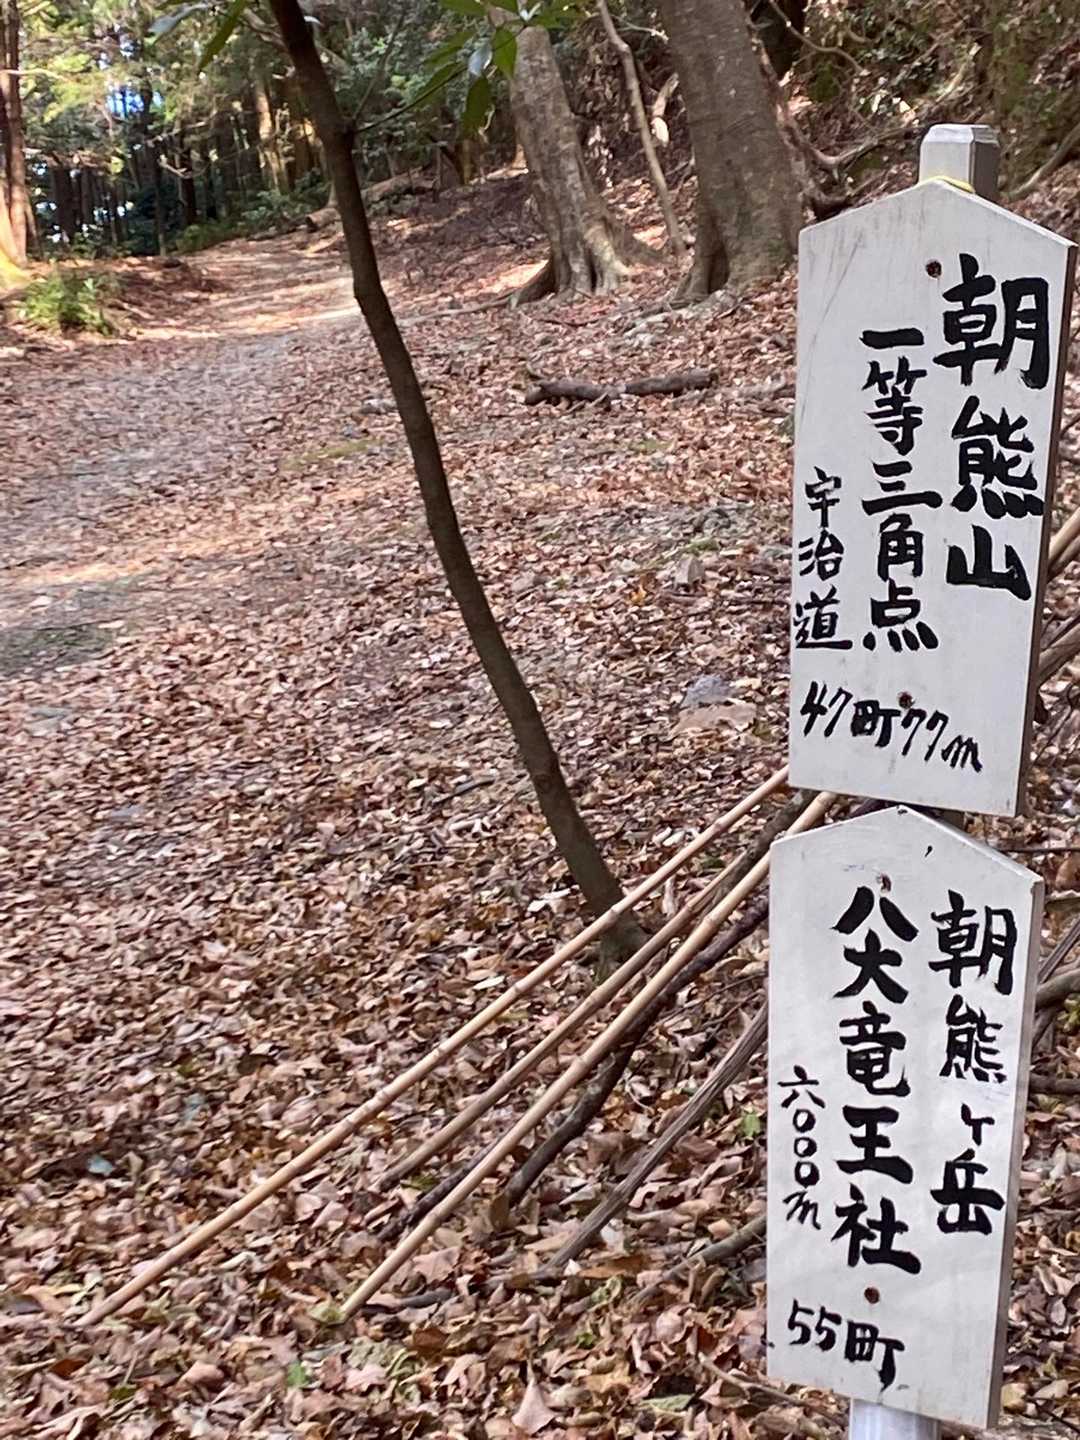 朝熊山
一等三角点
宇治道
47町77m
朝熊ヶ岳
八大竜王社
六〇〇〇m
55町